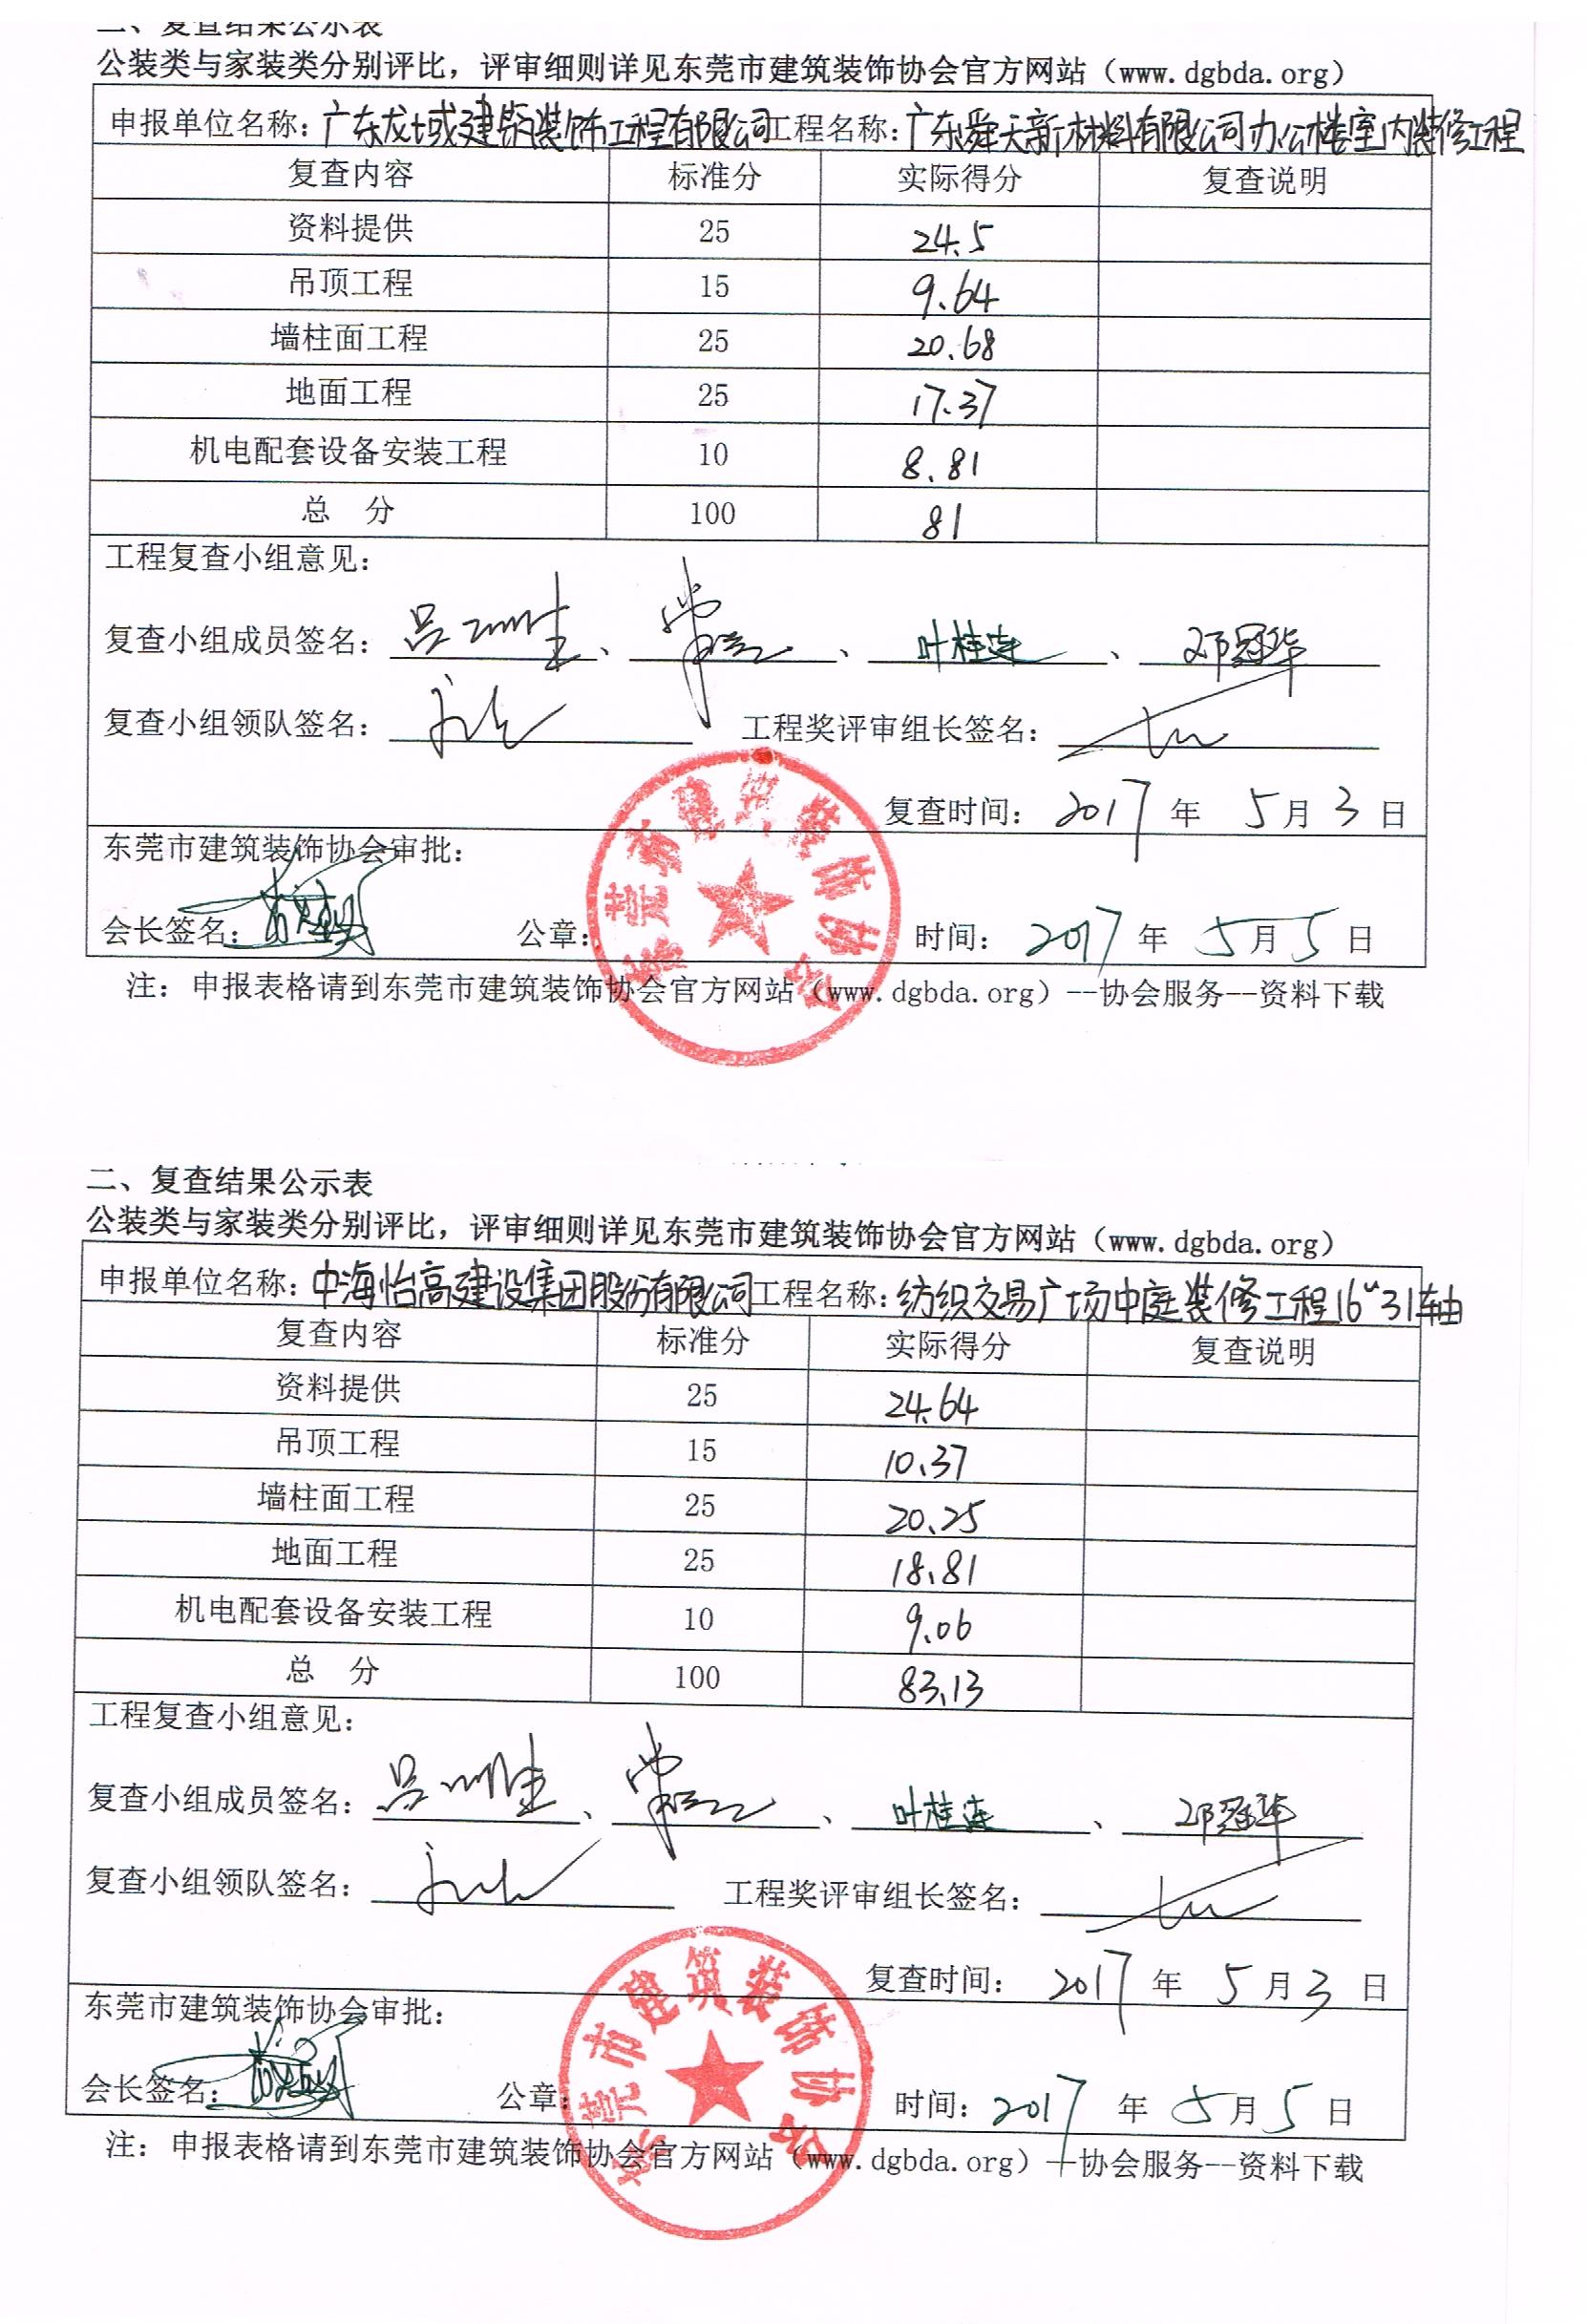 二、复查结果公示表
公装类与家装类分别评比，评审细则详见东莞市建筑装饰协会官方网站（www.dgbda.org）
申报单位名称：广东龙域建筑装饰工程有限公司工程名称：广东舜天新材料有限公司办公楼室内装修工程
复查内容 标准分 实际得分 复查说明
资料提供 25 24.5
吊顶工程 15 9.64
墙柱面工程 25 20.68
地面工程 25 17.37
机电配套设备安装工程 10 8.81
总 分 100 81
工程复查小组意见：
复查小组成员签名： 、 、 叶桂连 、 邓冠华
复查小组领队签名： 工程奖评审组长签名：
复查时间： 2017 年 5 月 3 日
东莞市建筑装饰协会审批：
会长签名： 公章： 时间： 2017 年 5 月 5 日
东莞市建筑装饰协会
注：申报表格请到东莞市建筑装饰协会官方网站（www.dgbda.org）--协会服务--资料下载
二、复查结果公示表
公装类与家装类分别评比，评审细则详见东莞市建筑装饰协会官方网站（www.dgbda.org）
申报单位名称：中海怡高建设集团股份有限公司工程名称：纺织交易广场中庭装修工程16~31轴
复查内容 标准分 实际得分 复查说明
资料提供 25 24.64
吊顶工程 15 10.37
墙柱面工程 25 20.25
地面工程 25 18.81
机电配套设备安装工程 10 9.06
总 分 100 83.13
工程复查小组意见：
复查小组成员签名： 、 、 叶桂连 、 邓冠华
复查小组领队签名： 工程奖评审组长签名：
复查时间： 2017 年 5 月 3 日
东莞市建筑装饰协会审批：
会长签名： 公章： 时间： 2017 年 5 月 5 日
东莞市建筑装饰协会
注：申报表格请到东莞市建筑装饰协会官方网站（www.dgbda.org）--协会服务--资料下载